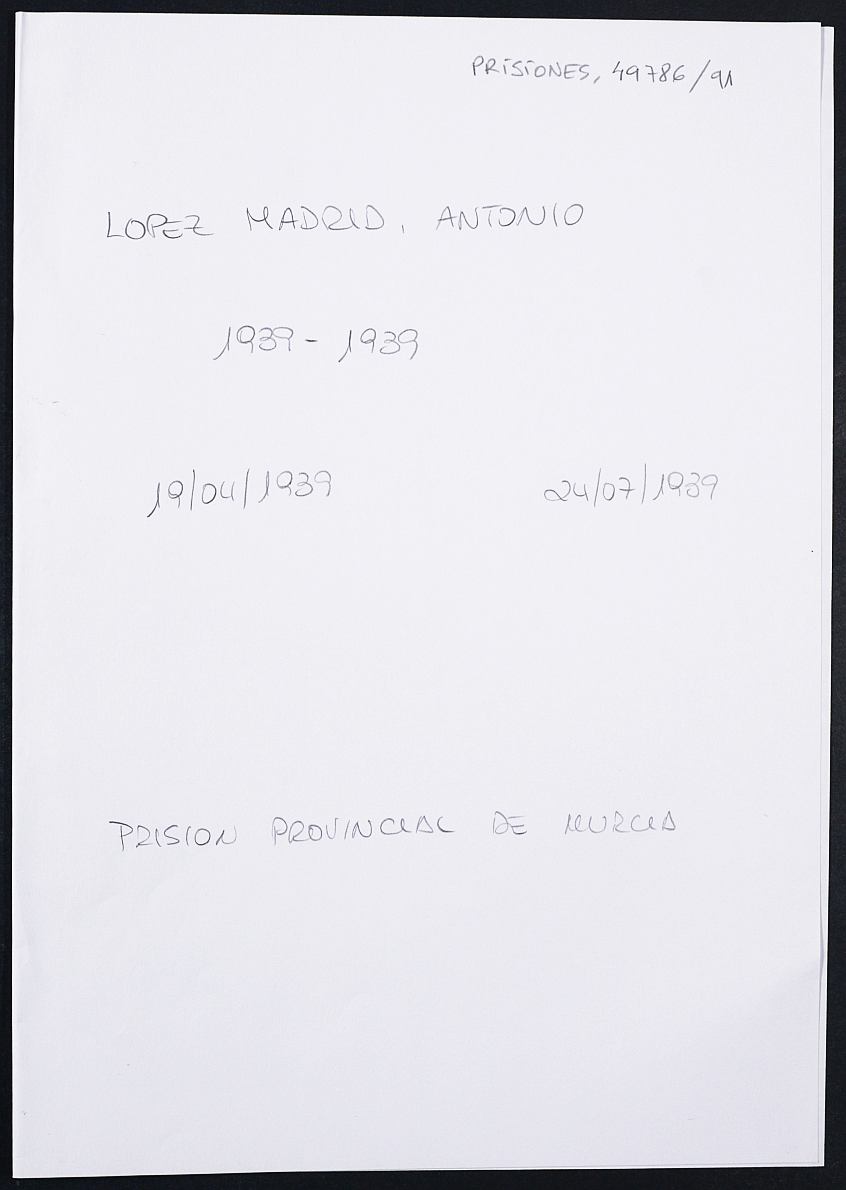 PRISIONES, 49786/91
LOPEZ MADRID, ANTONIO
1939 - 1939
19/04/1939 24/07/1939
PRISION PROVINCIAL DE MURCIA